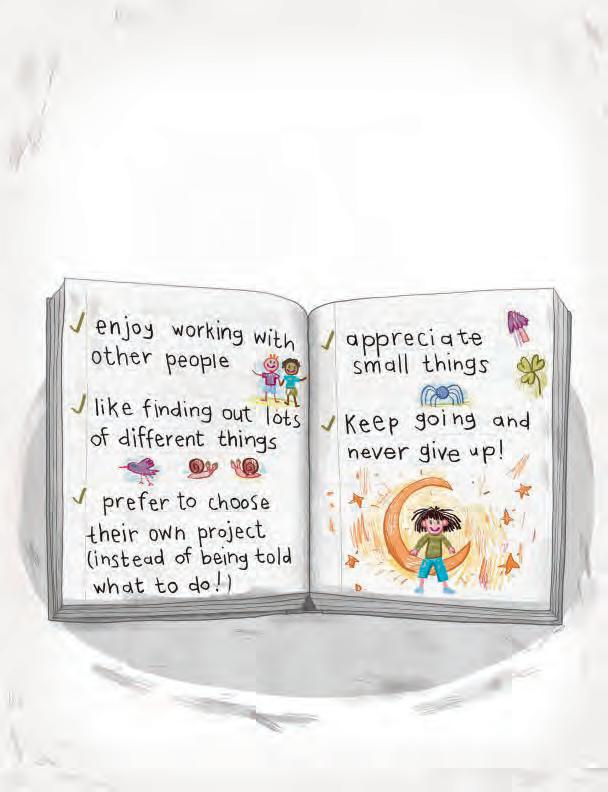 ✓ enjoy working with
other people
✓ like finding out lots
of different things
✓ prefer to choose
their own project
(instead of being told
what to do!)
✓ appreciate
small things
✓ Keep going and
never give up!